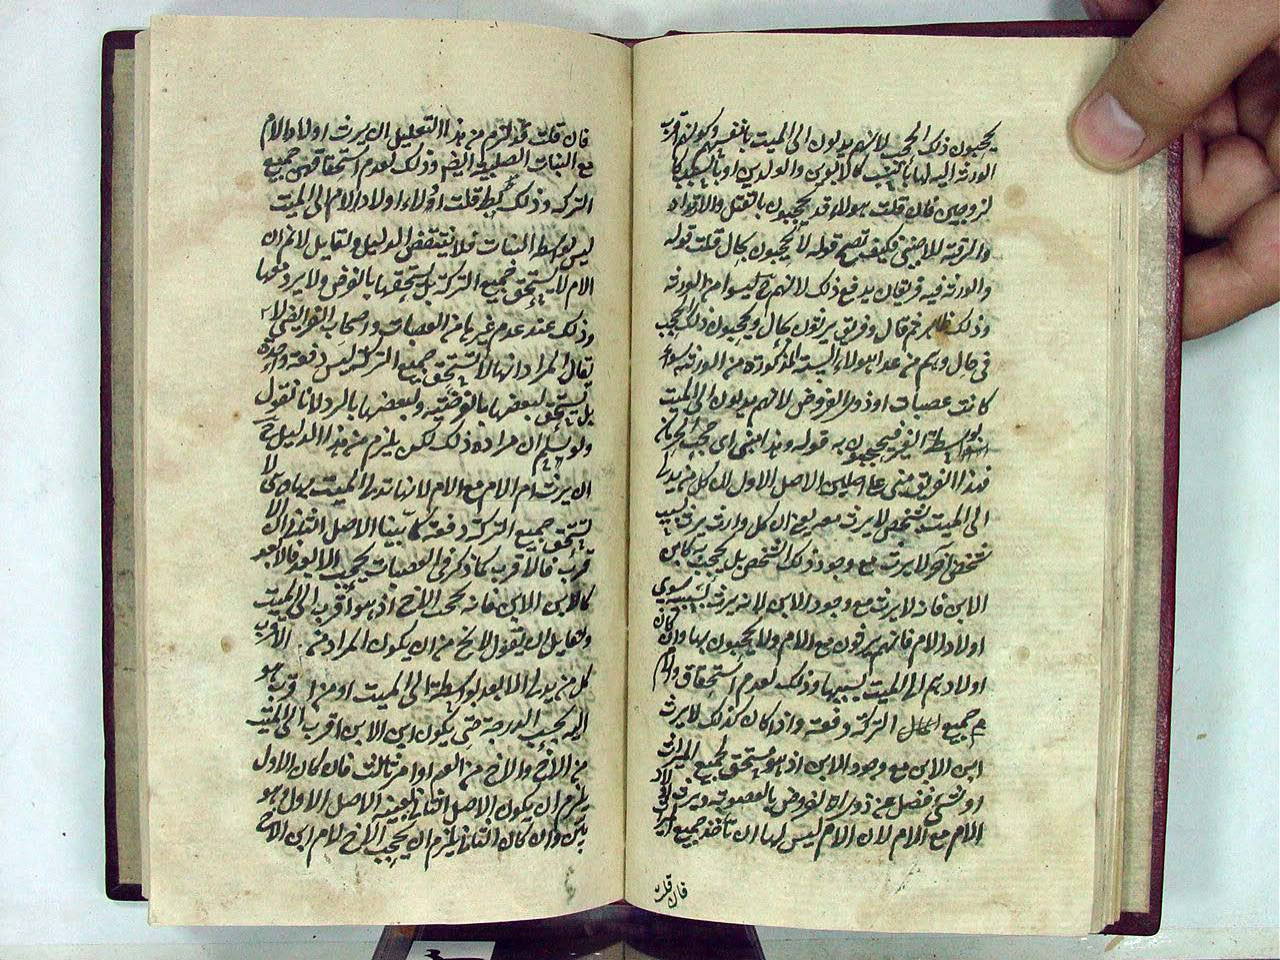 يحجبون ذلك الحجب لانهم يدلون الى الميت بانفسهم وكونهم اقرب
الورثة اليه اما بالنسب كالابوين والولدين او بالسبب كا
لزوجين فان قلت هولاء قد يحجبون بالقتل والارتداد
والرقية للاجنبي فكيف تصح قوله لا يحجبون بحال قلت قوله
والورثة فيه فريقان يدفع ذلك لانهم ح ليسوا من الورثة
وذلك ظاهر ثم قال وفريق يرثون بحال ويحجبون ذلك الحجب
في حال وهم من عدا هولاء الستة المذكورة من الورثة سواء
كانت عصبات او ذوا الفروض لانهم يدلون الى الميت
بواسطة الغير فيحجبون به قوله وهذا مبني اى حجب الحرمان
فهذا الفريق مبنى على اصلين الاصل الاول ان كل من يدلى
الى الميت بشخص لا يرث مع ان كل وارث يرث بسبب
شخص اخر لا يرث مع وجود ذلك الشخص بل يحجب به كابن
الابن فانه لا يرث مع وجود الابن لانه يرث بسببه سوى
اولاد الام فانهم يرثون مع الام ولا يحجبون بها وان كان
اولادهم الى الميت بسببها وذلك لعدم استحقاق الام
جميع التركة دفعة واذا كان كذلك لا يرث
ابن الابن مع وجود الابن اذ هو مستحق لجميع الميراث
او شئ فضل عن ذوى الفروض بالعصوبة ويرث اولاد
الام مع الام لان الام ليس لها ان تأخذ جميع
فان قلت
فان قلت قد لزم من هذا التعليل ان يرث اولاد الام
مع البنات الصلبية ايضا وذلك لعدم استحقاقهن جميع
التركة وذلك غلط قلت اولاء اولاد الام الى الميت
ليس بواسطة البنات فلا ينتقض الدليل ولقايل لانم ان
الام لا يستحق جميع التركة بل يستحقها بالفرض والرد معها
وذلك عند عدم غيرها من العصبات واصحاب الفرايض لا
يقال المراد انها لا تستحق جميع التركة ليس دفعة واحدة
بل تستحق بعضها بالفرضية وبعضها بالرد لانا نقول
ولو سلم ان مراده ذلك لكن يلزم من هذا الدليل ح
ان يرث ام الام مع الام لانها تدلى الميت بها وهى لا
تستحق جميع التركة دفعة كما بينا الاصل الثانى الا
قرب فالاقرب كما ذكر فى العصبات يحجب الابعد فالابعد
كالابن الابن فانه يحجب الاخ اذ هو اقرب الى الميت
ولقايل ان يقول لا يخ من ان يكون المراد من الاقرب
كل من يدلى الابعد بواسطة الى الميت او من هو اقرب
اليه بحسب الدرجة حتى يكون ابن الابن اقرب الى الميت
من الاخ والاخ من العم او امر ثالث فان كان الاول
يلزم ان يكون الاصل الثانى بعينه الاصل الاول وهو
بين وان كان الثانى يلزم ان يحجب الاخ لام ابن الاخ